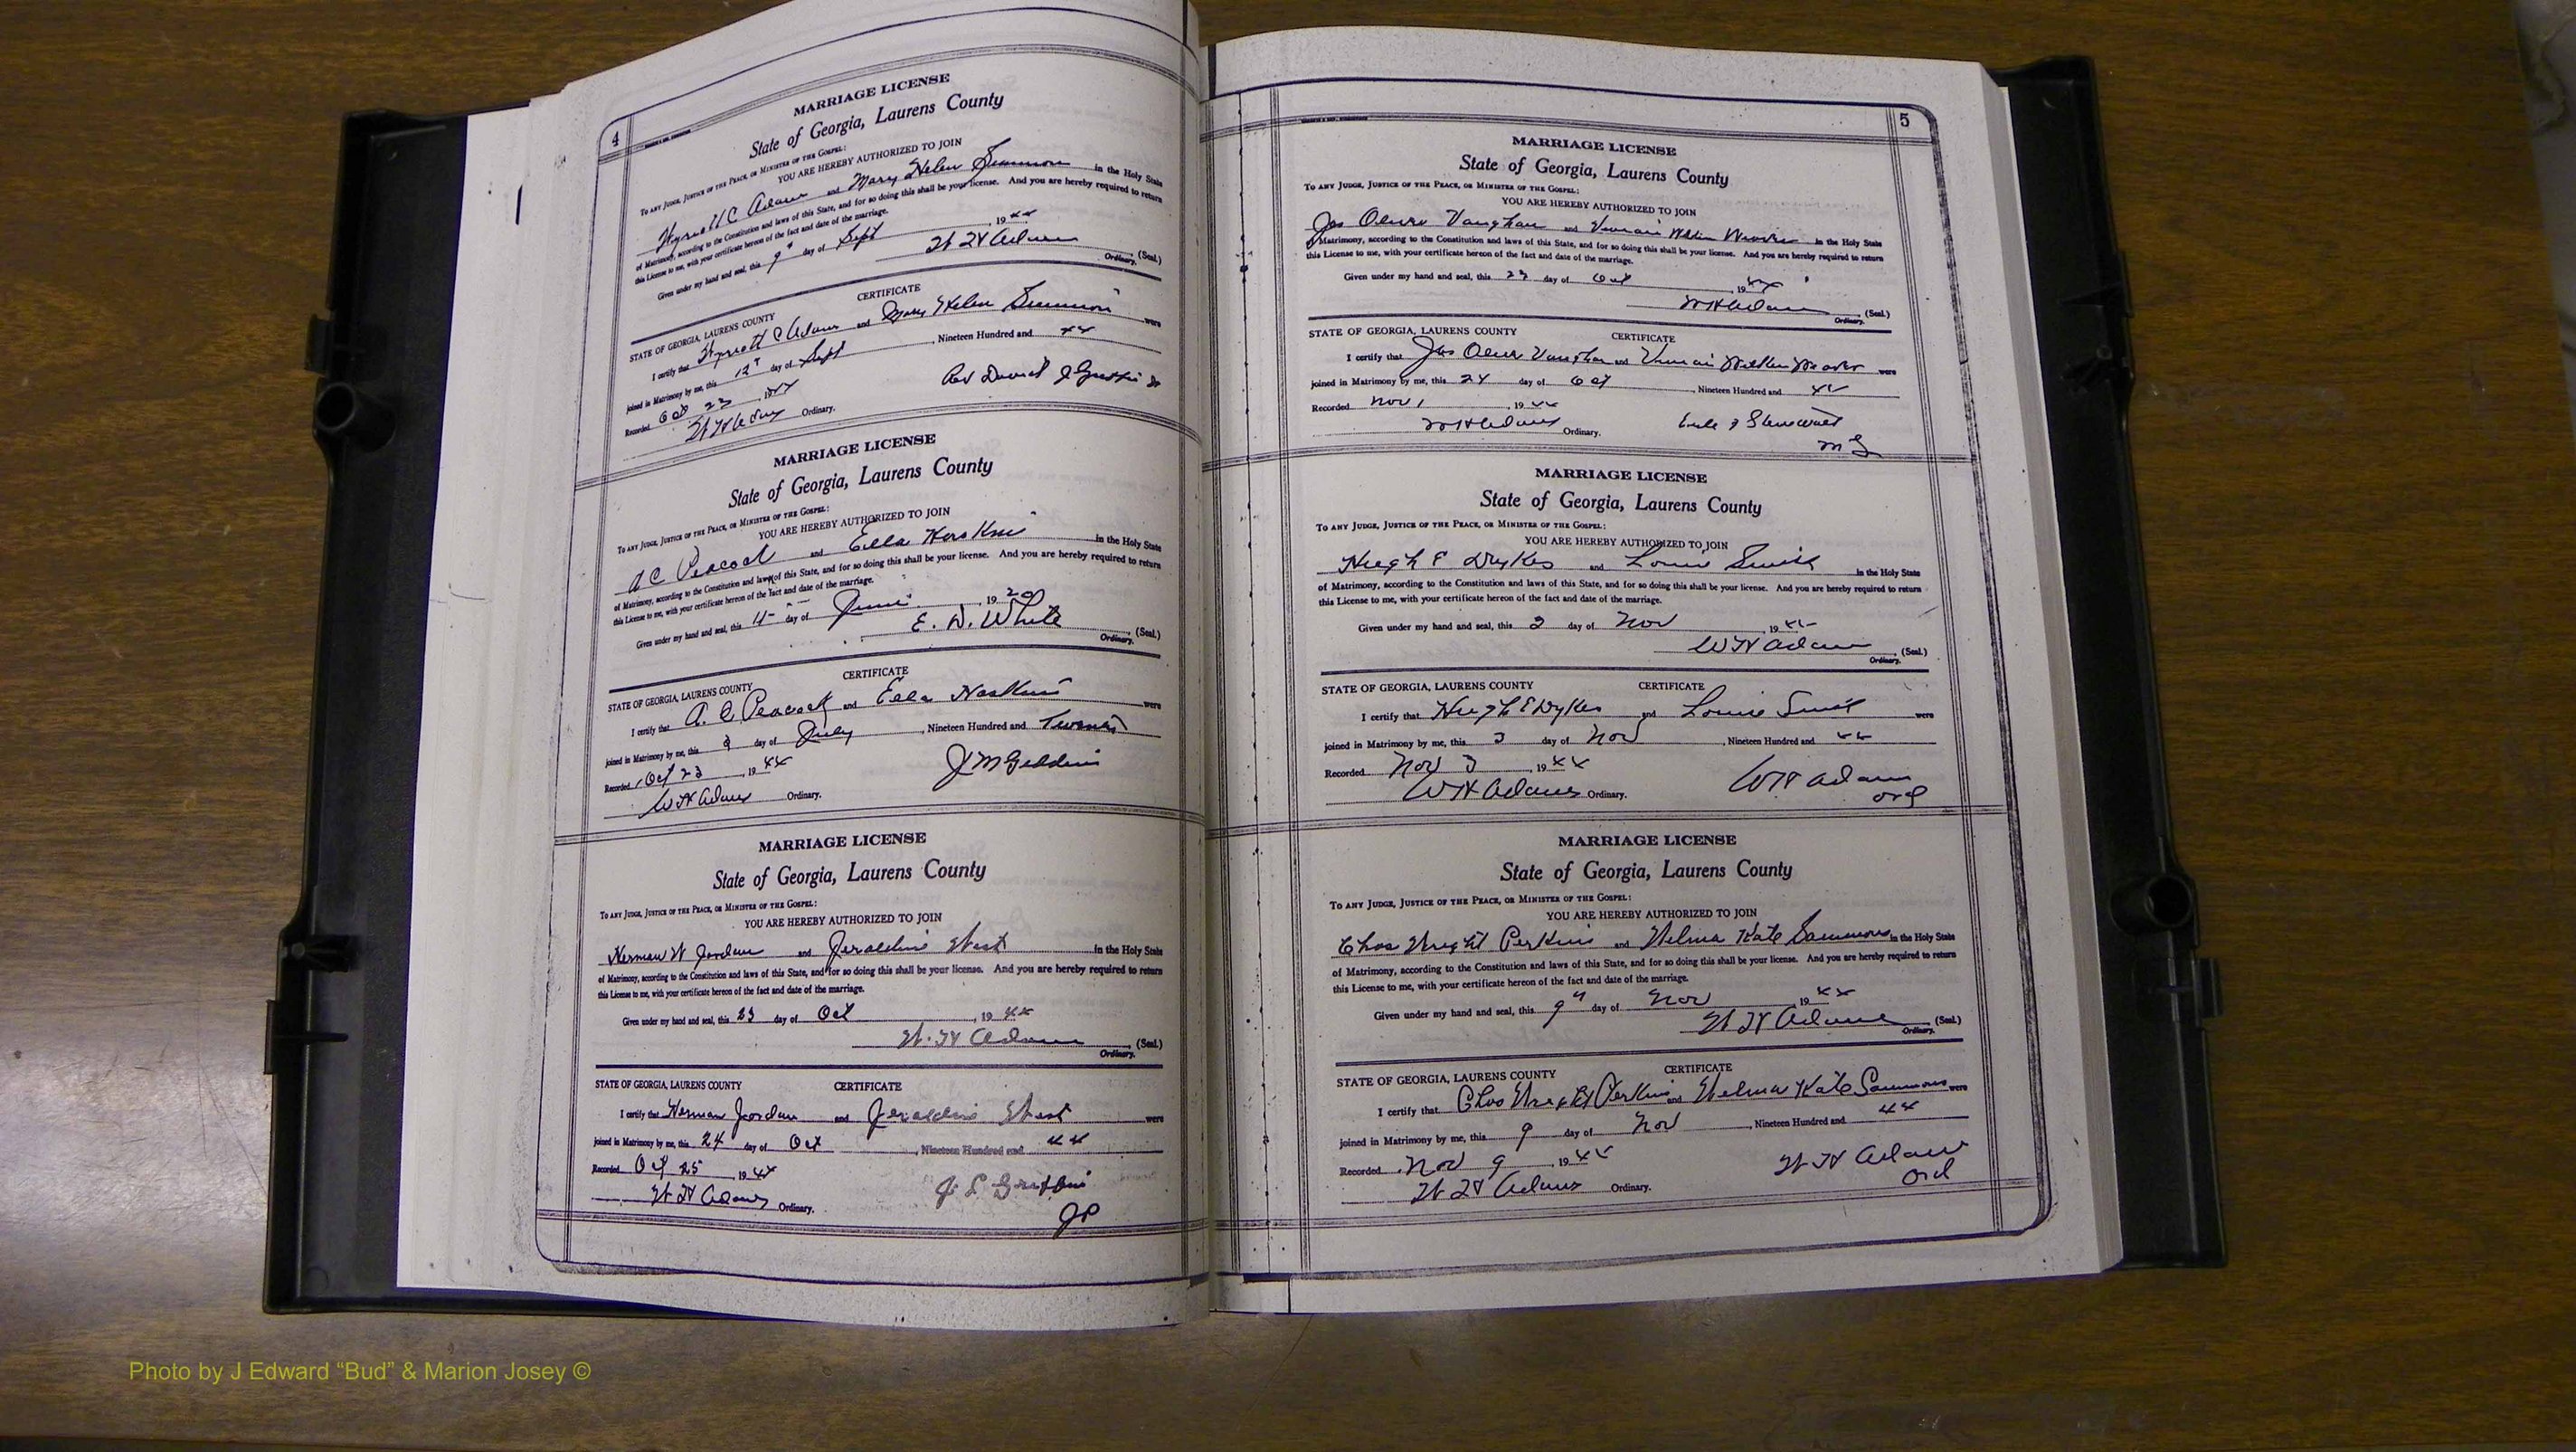 4
MARRIAGE LICENSE
State of Georgia, Laurens County
To any Judge, Justice of the Peace, or Minister of the Gospel:
YOU ARE HEREBY AUTHORIZED TO JOIN
C Adams and Mary Helen in the Holy State
of Matrimony, according to the Constitution and laws of this State, and for so doing this shall be your license. And you are hereby required to return
this License to me, with your certificate hereon of the fact and date of the marriage.
Given under my hand and seal, this 9" day of Sept, 1944
W H Adams (Seal.)
Ordinary.
CERTIFICATE
STATE OF GEORGIA, LAURENS COUNTY
I certify that C Adams and Mary Helen were
joined in Matrimony by me, this 12" day of Sept, Nineteen Hundred and 44
Recorded Oct 23, 1944
Rev David J
W H Adams Ordinary.
MARRIAGE LICENSE
State of Georgia, Laurens County
To any Judge, Justice of the Peace, or Minister of the Gospel:
YOU ARE HEREBY AUTHORIZED TO JOIN
A C Peacock and Ella Hoskins in the Holy State
of Matrimony, according to the Constitution and laws of this State, and for so doing this shall be your license. And you are hereby required to return
this License to me, with your certificate hereon of the fact and date of the marriage.
Given under my hand and seal, this day of June, 1920
E. D. White (Seal.)
Ordinary.
CERTIFICATE
STATE OF GEORGIA, LAURENS COUNTY
I certify that A. C Peacock and Ella Hoskins were
joined in Matrimony by me, this day of July, Nineteen Hundred and Twenty
Recorded Oct 23, 1944
J M
W H Adams Ordinary.
MARRIAGE LICENSE
State of Georgia, Laurens County
To any Judge, Justice of the Peace, or Minister of the Gospel:
YOU ARE HEREBY AUTHORIZED TO JOIN
Herman W Jordan and Jeraldine West in the Holy State
of Matrimony, according to the Constitution and laws of this State, and for so doing this shall be your license. And you are hereby required to return
this License to me, with your certificate hereon of the fact and date of the marriage.
Given under my hand and seal, this 23 day of Oct, 1944
W. H Adams (Seal.)
Ordinary.
STATE OF GEORGIA, LAURENS COUNTY CERTIFICATE
I certify that Herman Jordan and Jeraldine West were
joined in Matrimony by me, this 24 day of Oct, Nineteen Hundred and 44
Recorded Oct 25 1944
W H Adams Ordinary.
JP
5
MARRIAGE LICENSE
State of Georgia, Laurens County
To any Judge, Justice of the Peace, or Minister of the Gospel:
YOU ARE HEREBY AUTHORIZED TO JOIN
Jas Vaughan and in the Holy State
of Matrimony, according to the Constitution and laws of this State, and for so doing this shall be your license. And you are hereby required to return
this License to me, with your certificate hereon of the fact and date of the marriage.
Given under my hand and seal, this 23 day of Oct, 1944
W H Adams (Seal.)
Ordinary.
STATE OF GEORGIA, LAURENS COUNTY CERTIFICATE
I certify that Jas Vaughan and were
joined in Matrimony by me, this 24 day of Oct, Nineteen Hundred and 44
Recorded Nov 1, 1944
W H Adams Ordinary.
M G
MARRIAGE LICENSE
State of Georgia, Laurens County
To any Judge, Justice of the Peace, or Minister of the Gospel:
YOU ARE HEREBY AUTHORIZED TO JOIN
Hugh E Dykes and Louise Smith in the Holy State
of Matrimony, according to the Constitution and laws of this State, and for so doing this shall be your license. And you are hereby required to return
this License to me, with your certificate hereon of the fact and date of the marriage.
Given under my hand and seal, this 3 day of Nov, 1944
W H Adams (Seal.)
Ordinary.
STATE OF GEORGIA, LAURENS COUNTY CERTIFICATE
I certify that Hugh E Dykes and Louise Smith were
joined in Matrimony by me, this 3 day of Nov, Nineteen Hundred and 44
Recorded Nov 3, 1944
W H Adams Ordinary.
W H Adams
Ord
MARRIAGE LICENSE
State of Georgia, Laurens County
To any Judge, Justice of the Peace, or Minister of the Gospel:
YOU ARE HEREBY AUTHORIZED TO JOIN
Chas Wright Perkins and Kate Sammons in the Holy State
of Matrimony, according to the Constitution and laws of this State, and for so doing this shall be your license. And you are hereby required to return
this License to me, with your certificate hereon of the fact and date of the marriage.
Given under my hand and seal, this 9" day of Nov, 1944
W H Adams (Seal.)
Ordinary.
STATE OF GEORGIA, LAURENS COUNTY CERTIFICATE
I certify that Chas Wright Perkins and Kate Sammons were
joined in Matrimony by me, this 9 day of Nov, Nineteen Hundred and 44
Recorded Nov 9, 1944
W H Adams Ordinary.
W H Adams
Ord
Photo by J Edward “Bud” & Marion Josey ©